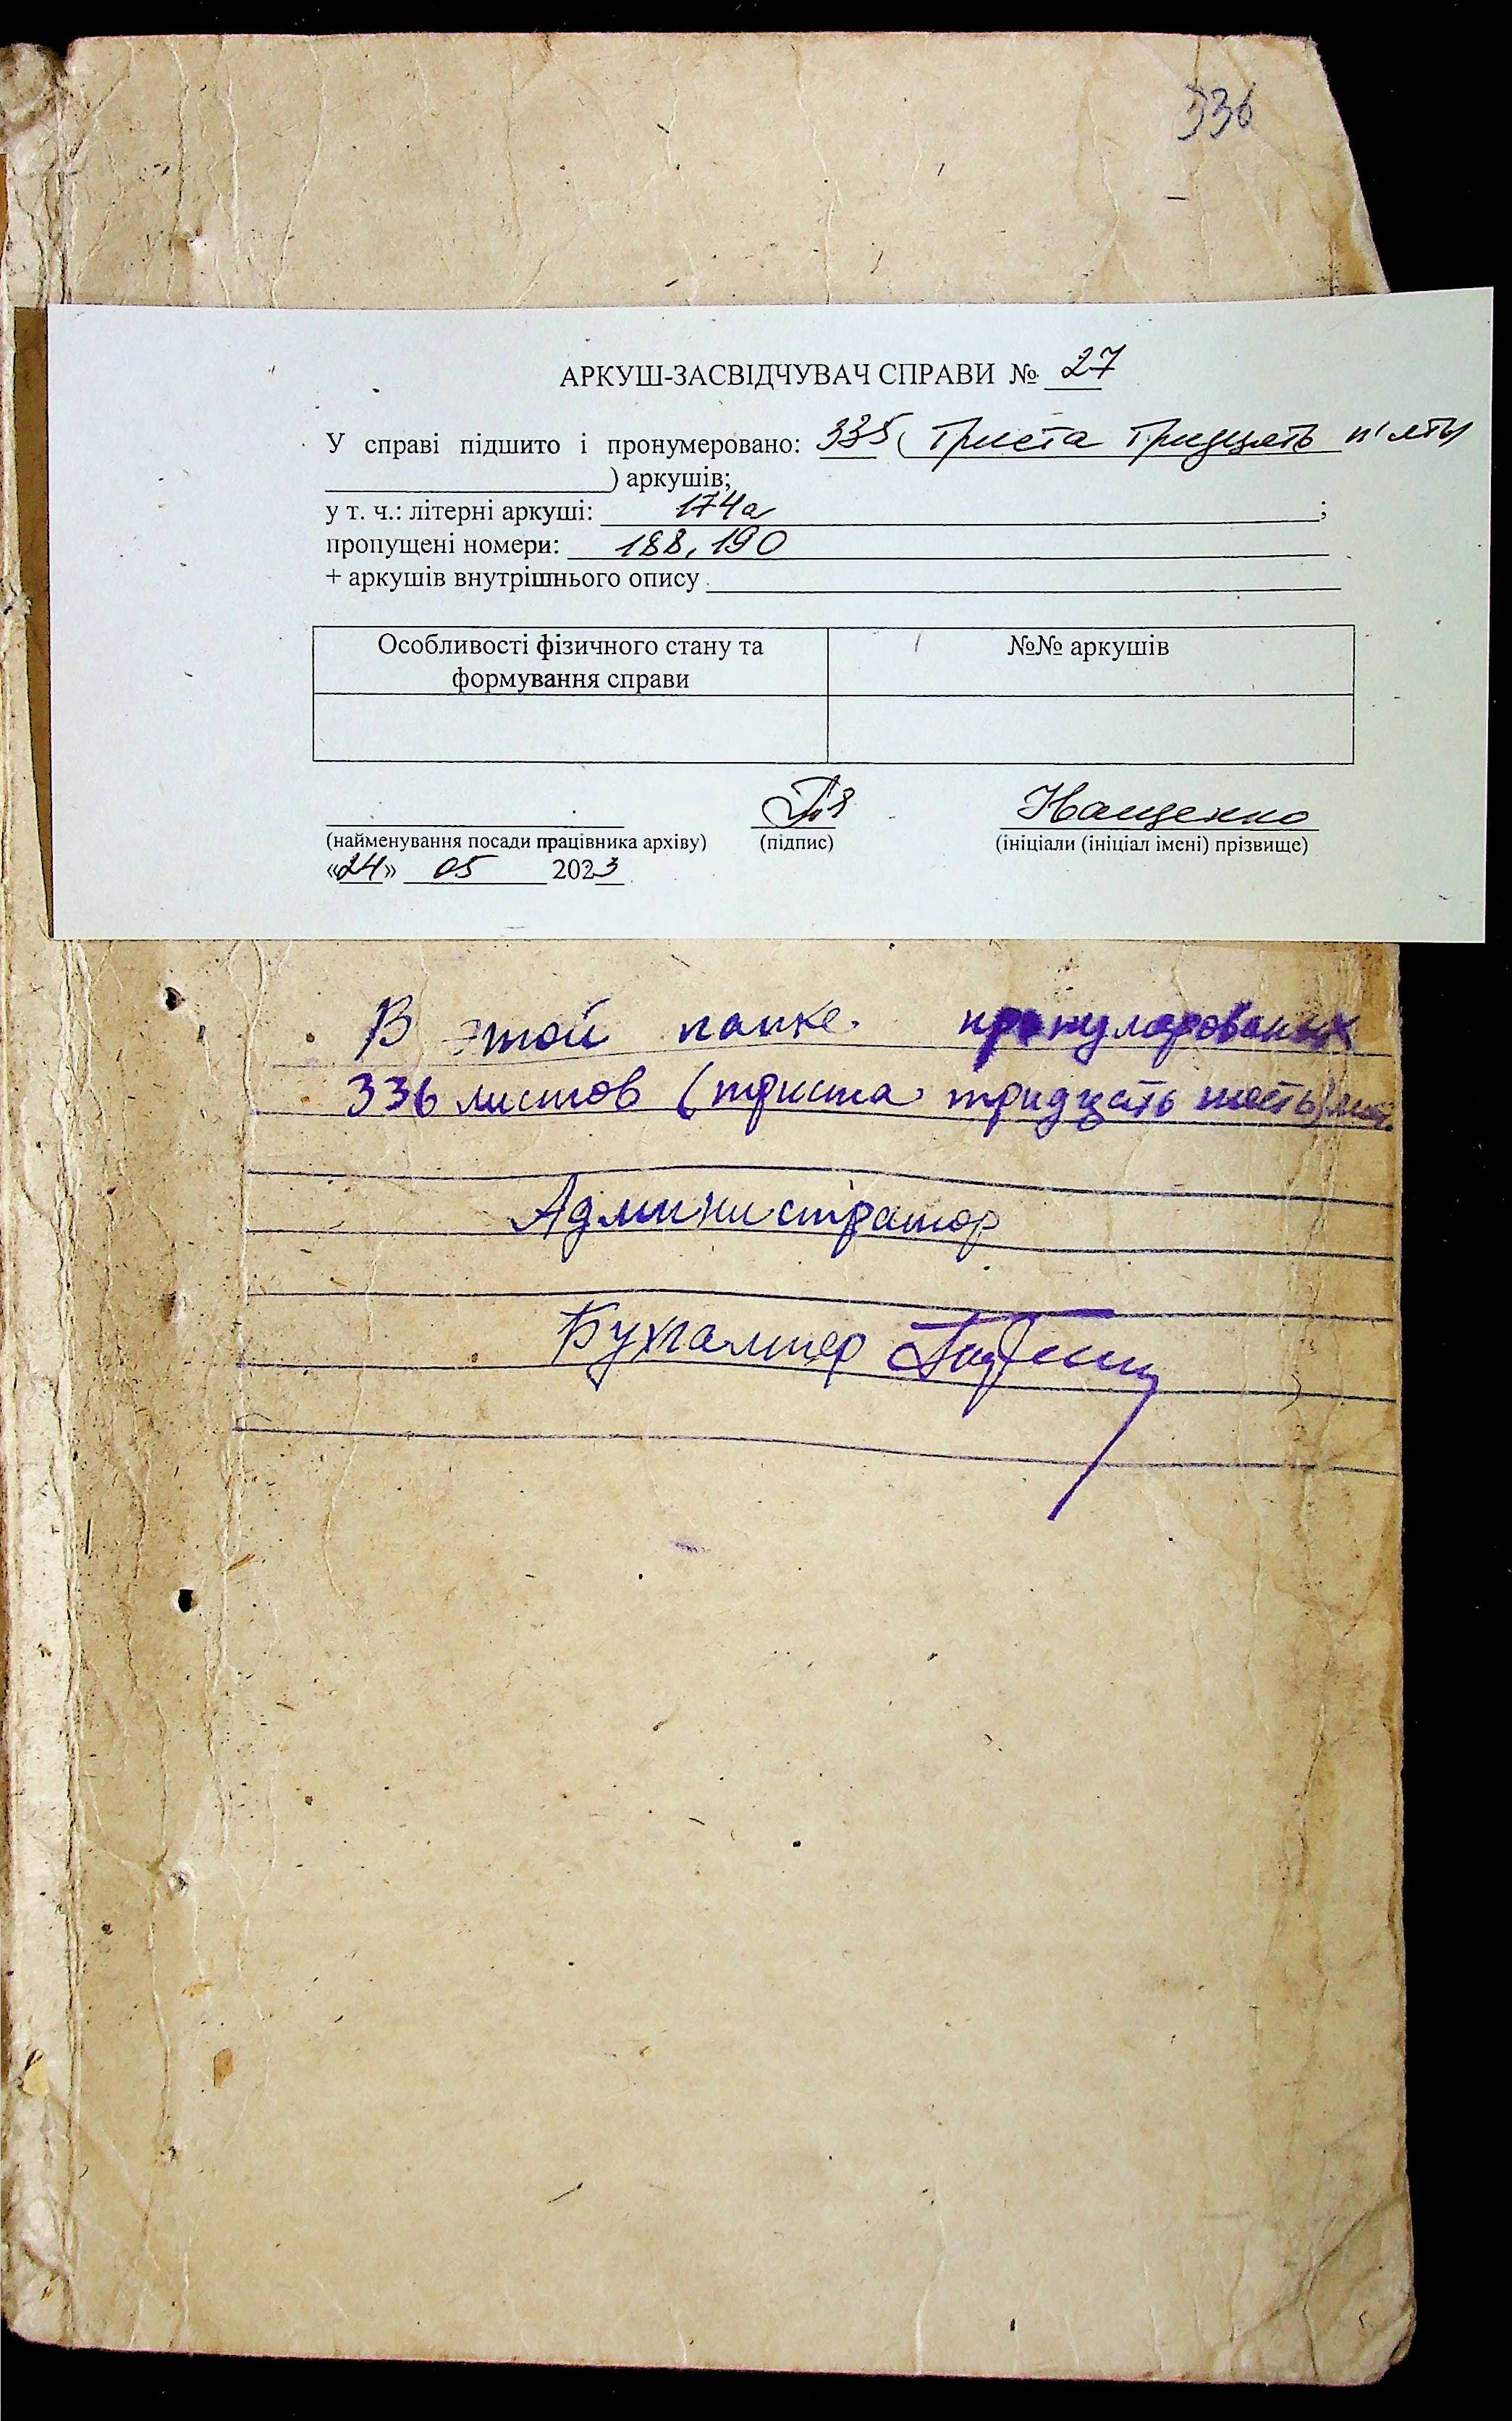 336
АРКУШ-ЗАСВІДЧУВАЧ СПРАВИ № 27
У справі підшито і пронумеровано: 335 ( Триста тридцять п'ять
) аркушів;
у т. ч.: літерні аркуші: 174а ;
пропущені номери: 188, 190
+ аркушів внутрішнього опису
Особливості фізичного стану та
формування справи
№№ аркушів
(найменування посади працівника архіву) (підпис) (ініціали (ініціал імені) прізвище)
«24» 05 2023
В этой папке
336 листов (триста тридцать шесть)
Администратор
Бухгалтер